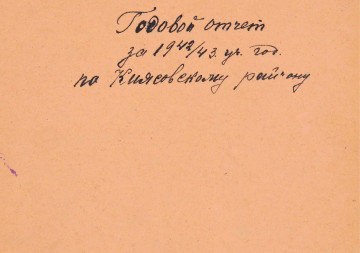 Годовой отчет
за 1942/43 уч. год.
по Киясовскому району